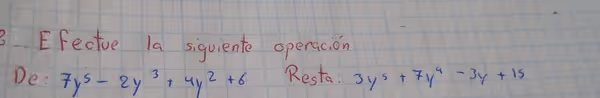 3_ Efectue la siguiente operación
De: 7y⁵ - 2y³ + 4y² + 6 Resta: 3y⁵ + 7y⁴ - 3y + 15